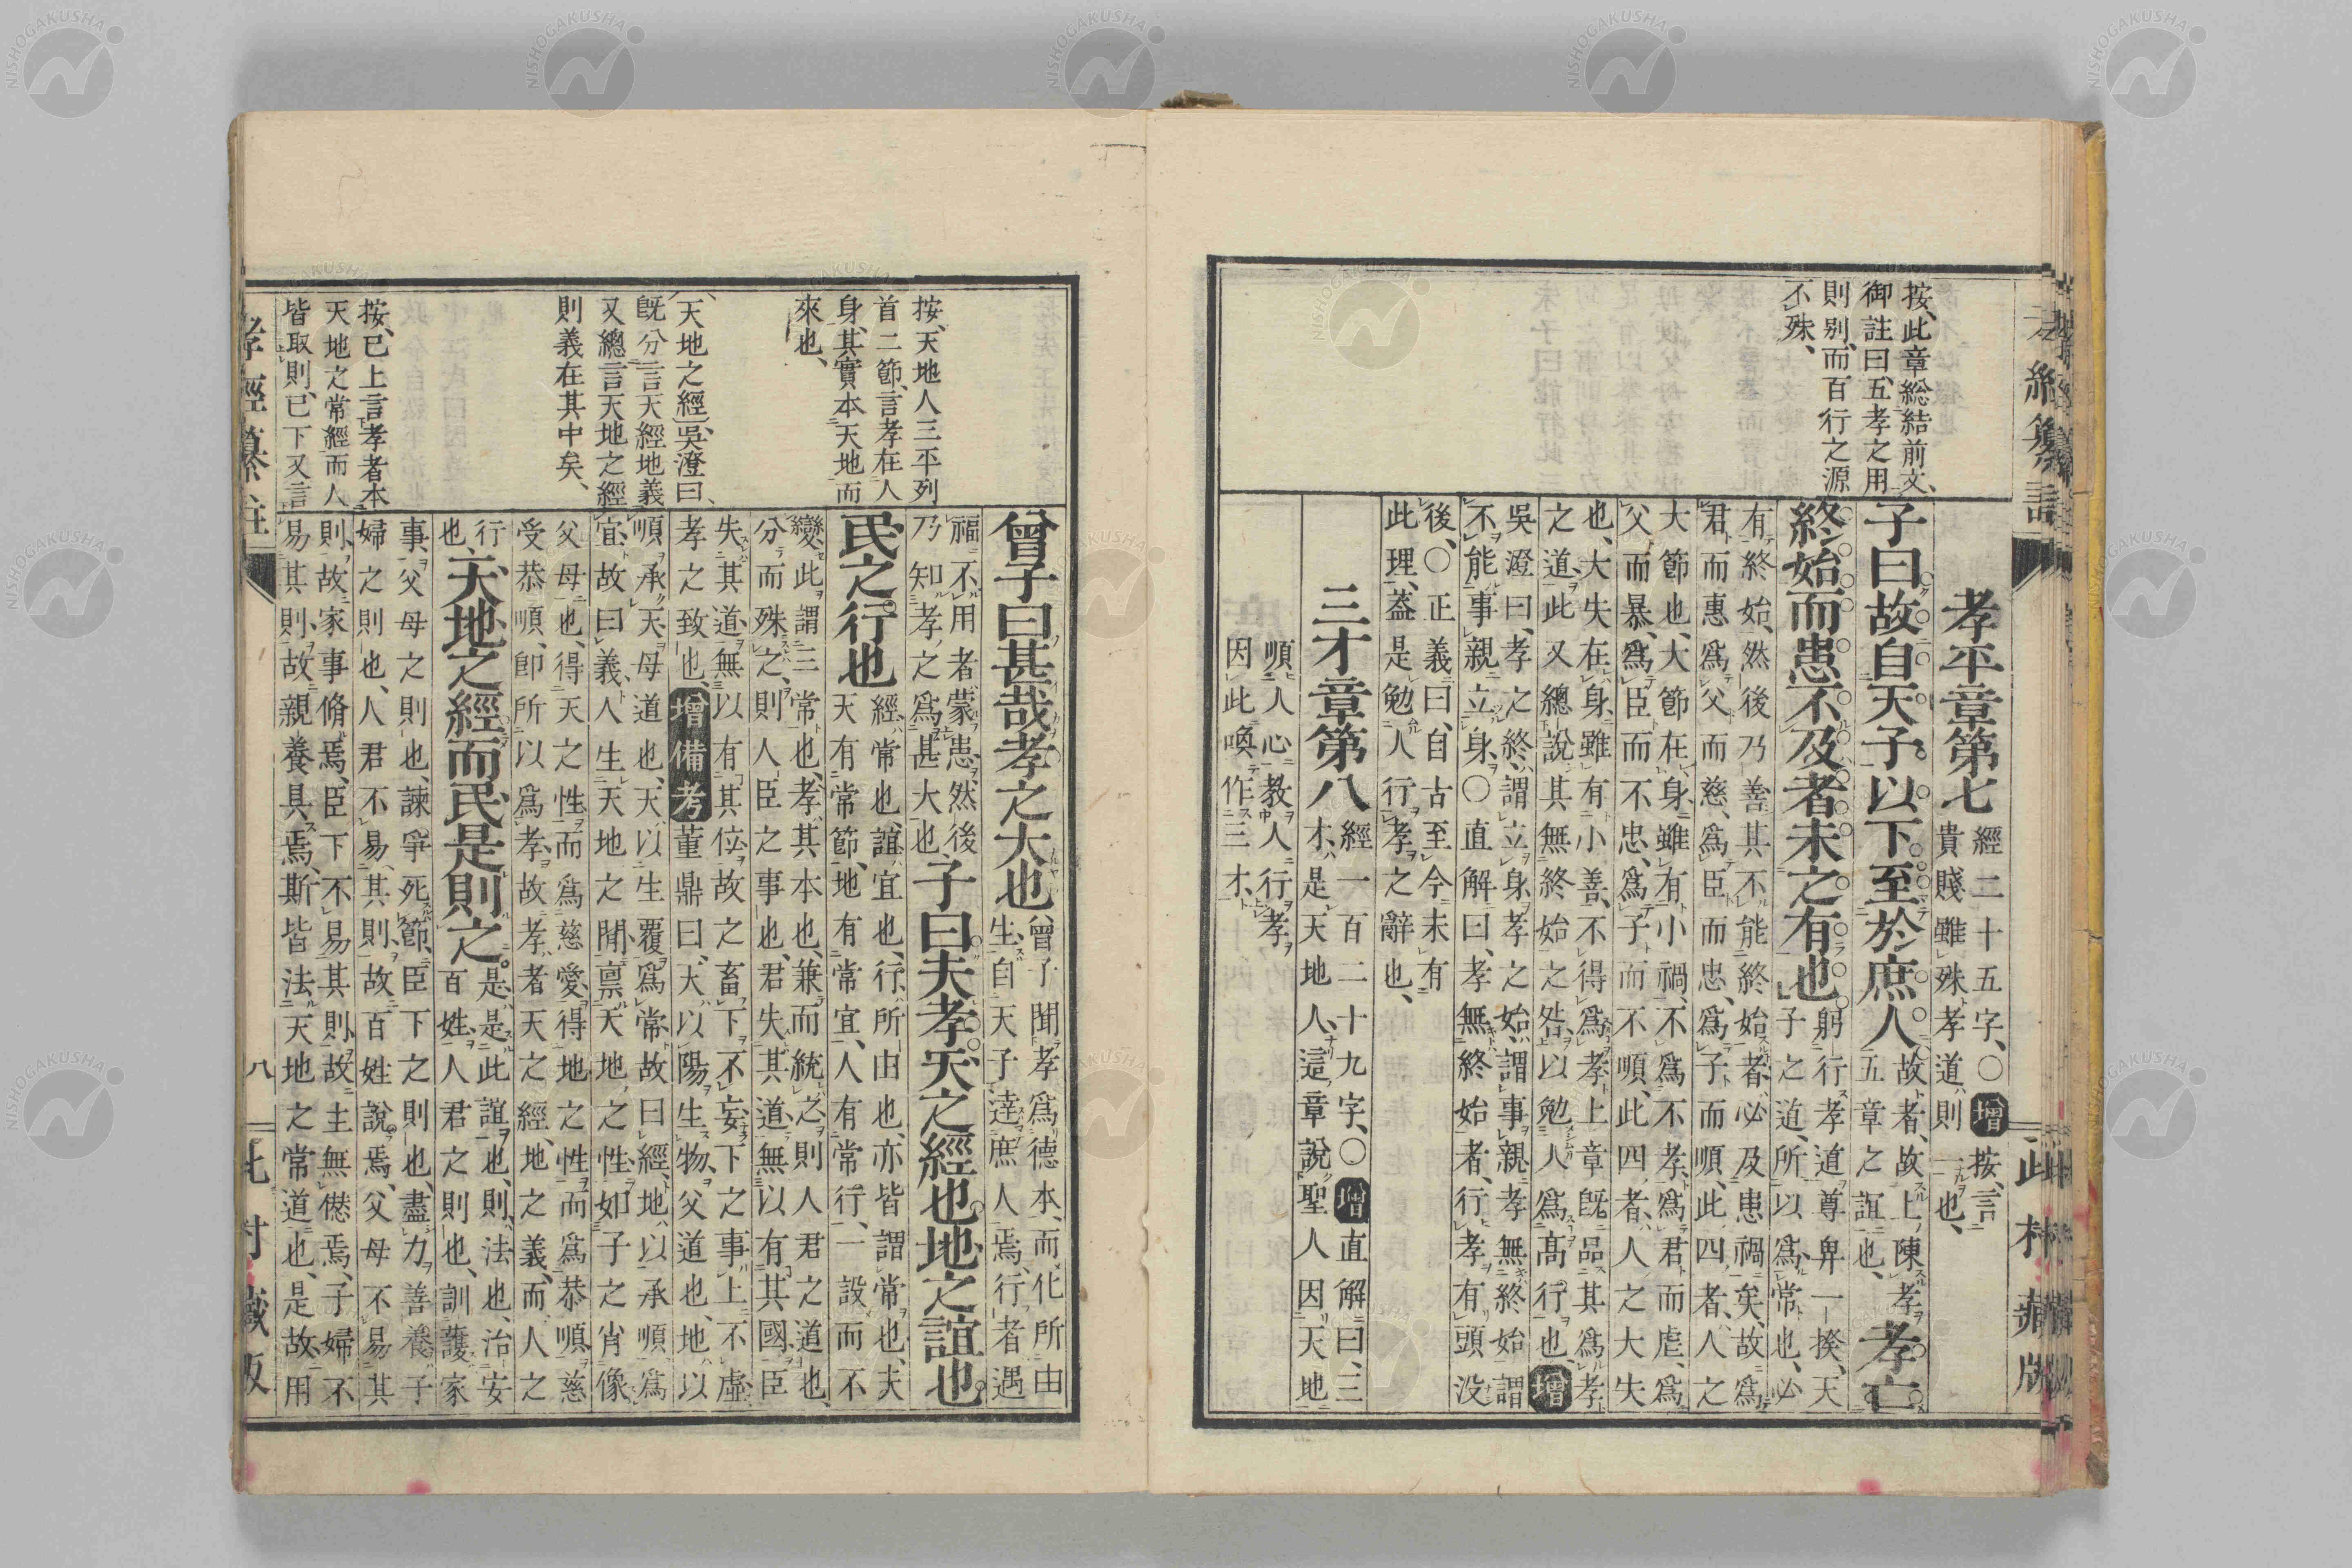 孝經纂註
此村藏版
按、此章総結前文、
御註曰、五孝之用
則別、而百行之源
不殊、
孝平章第七
經二十五字、〇增按、言
貴賤雖殊孝道則一也、
子曰故自天子以下至於庶人
故者、故上陳孝
五章之誼也、
孝亡
終始而患不及者未之有也
躬行孝道尊卑一揆、天
子之道、所以爲常也、必
有終始、然後乃善其不能終始者、必及患禍矣、故爲
君而惠、爲父而慈、爲臣而忠、爲子而順、此四者、人之
大節也、大節在身、雖有小禍、不爲不孝、爲君而虐、爲
父而暴、爲臣而不忠、爲子而不順、此四者、人之大失
也、大失在身、雖有小善、不得爲孝、上章既品其爲孝
之道、此又總說其無終始之咎、以勉人爲高行也增
吳澄曰、孝之終、謂立身、孝之始、謂事親、孝無終始、謂
不能事親立身、〇直解曰、孝無終始者、行孝有頭沒
後、〇正義曰、自古至今未有
此理、蓋是勉人行孝之辭也、
三才章第八
經一百二十九字、〇增直解曰、三
才、是天地人、這章說聖人因天地
順人心、教人行孝、
因此喚作三才、
按、天地人三平列
首二節、言孝在人
身、其實本天地而
來也、
天地之經、吳澄曰、
既分言天經地義
又總言天地之經
則義在其中矣、
按、已上言孝者本
天地之常經而人
皆取則、已下又言
曾子曰甚哉孝之大也
曾子聞孝爲德本、而化所由
生、自天子達庶人焉、行者遇
福、不用者蒙患、然後
乃知孝之爲甚大也、
子曰夫孝天之經也地之誼也
民之行也
經、常也、誼、宜也、行、所由也、亦皆謂常也、夫
天有常節、地有常宜、人有常行、一設而不
變、此謂三常也、孝其本也、兼而統之、則人君之道也、
分而殊之、則人臣之事也、君失其道、無以有其國、臣
失其道、無以有其位、故之畜下、不妄、下之事上、不虛、
孝之致也、增備考董鼎曰、天以陽生物、父道也、地以
順承天、母道也、天以生覆爲常、故曰經、地以承順爲
宜、故曰義、人生天地之閒、稟天地之性、如子之肖像
父母也、得天之性、而爲慈愛、得地之性、而爲恭順、慈
受恭順、卽所以爲孝、故孝者天之經、地之義、而人之
行、
也、
天地之經而民是則之
是、是此誼也、則、法也、治安
百姓、人君之則也、訓護家
事、父母之則也、諫爭死節、臣下之則也、盡力善養、子
婦之則也、人君不易其則、故百姓說焉、父母不易其
則、故家事脩焉、臣下不易其則、故主無愆焉、子婦不
易其則、故親養具焉、斯皆法天地之常道也、是故用
孝經纂註
八
此村藏版